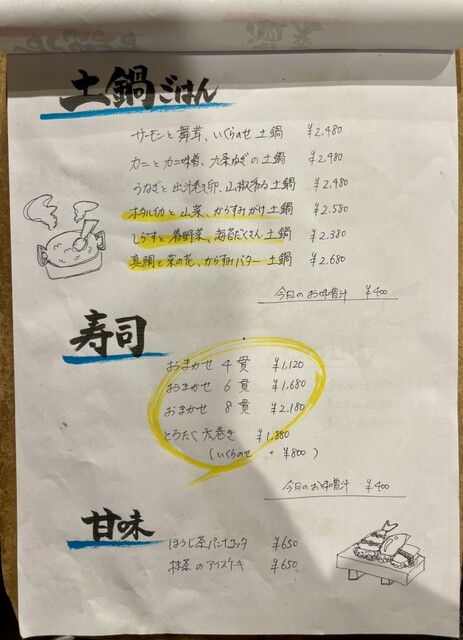 土鍋ごはん
サーモンと舞茸、いくらのせ 土鍋 ¥2.480
カニとカニ味噌、九条ねぎの土鍋 ¥2.480
うなぎと出汁巻き卵、山椒香る土鍋 ¥2.480
ホタルイカと山菜、からすみがけ土鍋 ¥2.580
しらすと春野菜、海苔たくさん土鍋 ¥2.380
真鯛と菜の花、からすみバター土鍋 ¥2.680
今日のお味噌汁 ¥400
寿司
おまかせ 4貫 ¥1,120
おまかせ 6貫 ¥1.680
おまかせ 8貫 ¥2.180
とろたく太巻き ¥1,880
(いくらのせ + ¥800)
今日のお味噌汁 ¥400
甘味
ほうじ茶パンナコッタ ¥650
抹茶のアイスケーキ ¥650